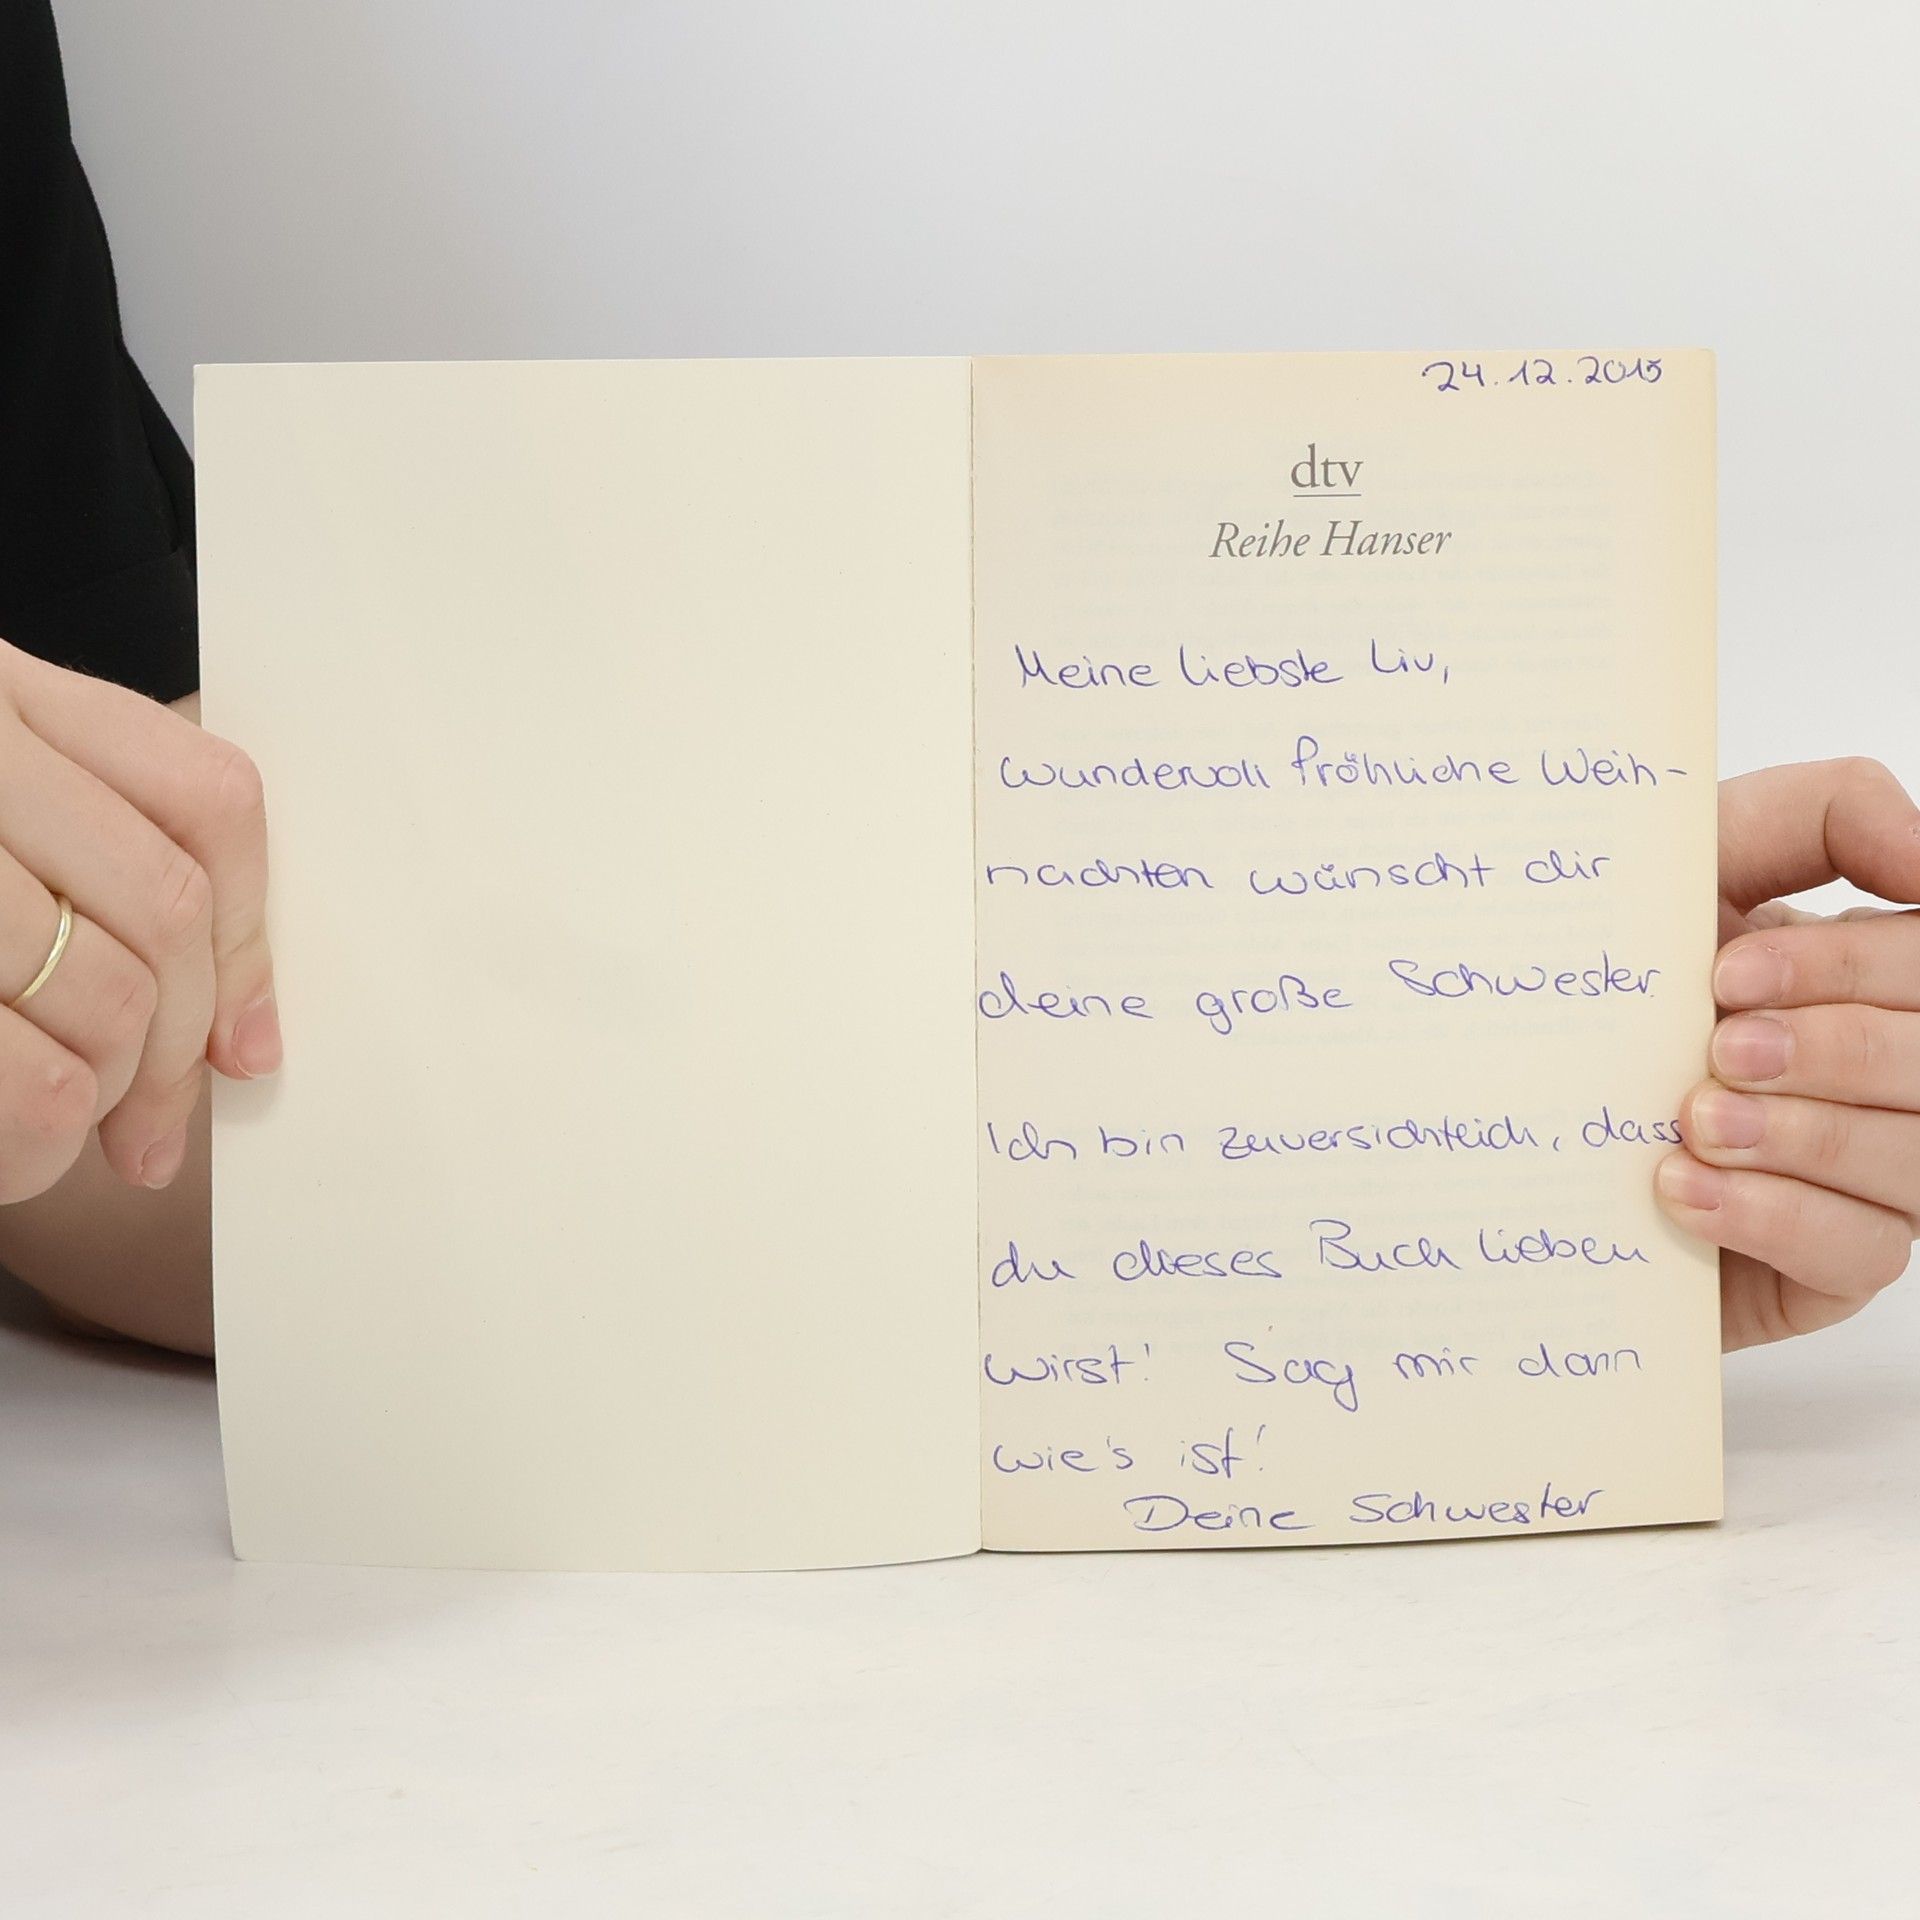 24.12.2015
dtv
Reihe Hanser
Meine liebste Liv,
wundervoll fröhliche Weih-
nachten wünscht dir
deine große Schwester.
Ich bin zuversichtlich, dass
du dieses Buch lieben
wirst! Sag mir dann
wie's ist!
Deine Schwester